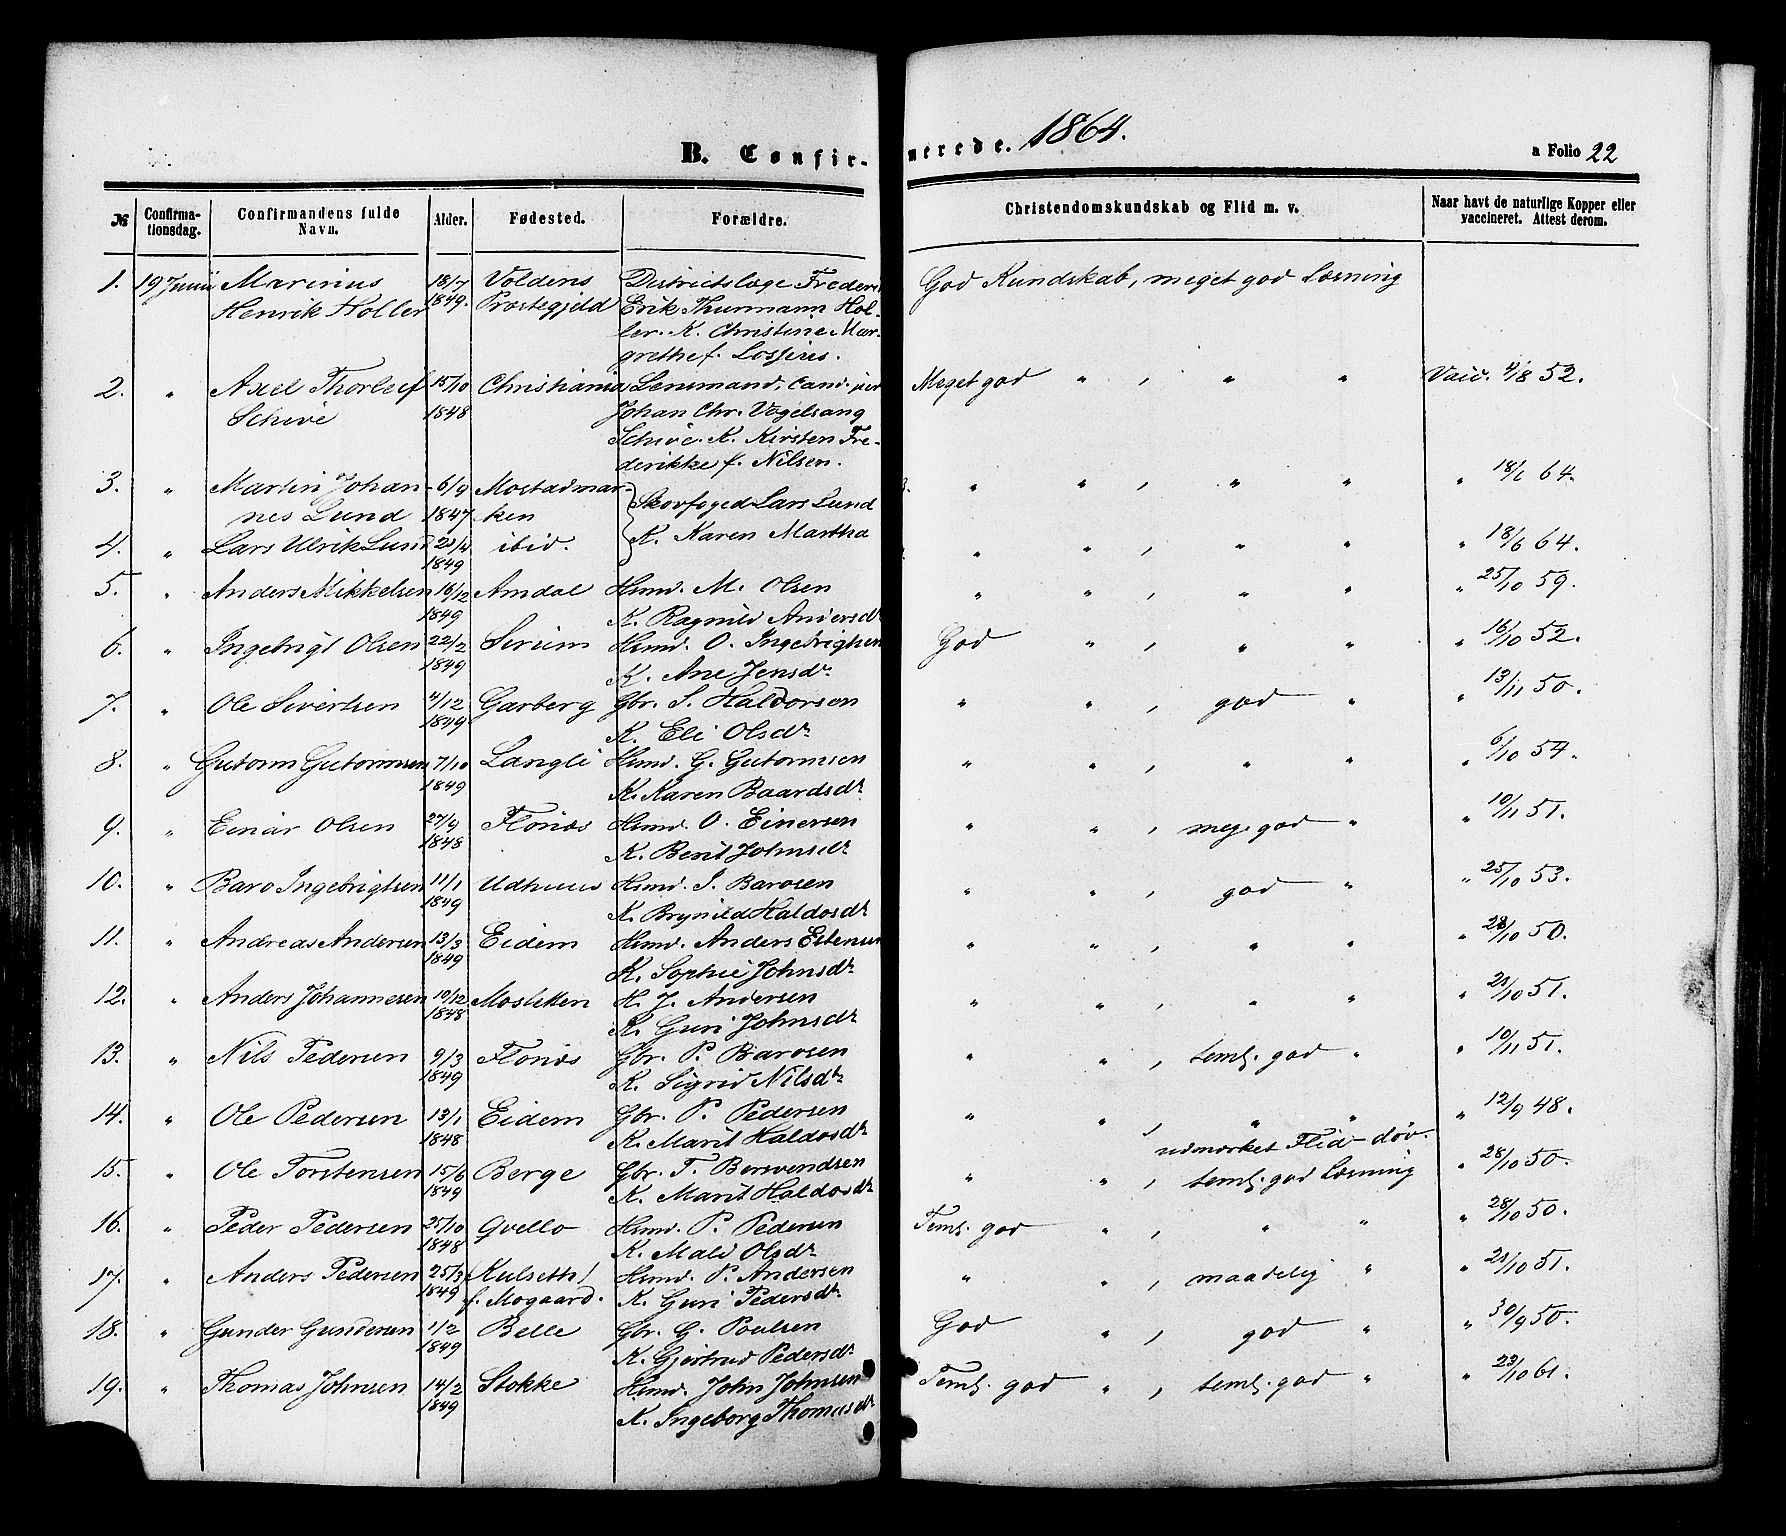 B. Confirmerede. 1864. a Folio 22
№ Confirmationsdag. Confirmandens fulde Navn. Alder. Fødested. Forældre. Christendomskundskab og Flid m. v. Naar havt de naturlige Kopper eller vaccineret. Attest derom.
1. 19 Juni Marinus 18/7 Voldens Districtslæge Frederi God Kundskab, meget god Læsning
Henrik Holler 1849. Præstegjeld Erik Thurmann Hol-
ler. K. Christine Mar-
grethe f.
2. " Axel Thorlef 15/10 Christiania Lensmand, Cand. jur Meget god " , " " Vacc. 4/8 52.
Schive 1848 Johan Chr. Vogelsang
Schive. K. Kirsten Fre-
derikke f. Nilsen.
3. " Martin Johan- 6/9 Mostadmar- Skovfoged Lars Lund " " , " " " 18/6 64.
nes Lund 1847 ken K. Karen Martha
4. " Lars Ulrik Lund 23/4 ibid. " " , " " " 18/6 64.
1849
5. " Anders Mikkelsen 16/12 Amdal Hsmd. M. Olsen " " , " " " 25/10 59.
1849 K. Ragnild Andersdr
6. " Ingebrigt Olsen 22/2 Serum Hsmd. O. Ingebrigtsen God " , " " " 16/10 52.
1849 K. Ane Jensdr
7. " Ole Sivertsen 4/12 Garberg Gbr. S. Haldorsen " " , god " " 13/11 50.
1849 K. Eli Olsdr
8. " Gutorm Gutormsen 7/10 Langli Hsmd. G. Gutormsen " " , " " " 6/10 54.
1849 K. Karen Baardsdr
9. " Einar Olsen 27/9 Florães Hsmd. O. Einersen " " , meg. god " " 10/11 51.
1848 K. Berit Johnsdr
10. " Baro Ingebrigtsen 11/1 Udhuus Hsmd. I. Barosen " " , god " " 25/10 53.
1849 K. Brynild Haldosdr
11. " Andreas Andersen 13/3 Eidem Hsmd. Anders Estensen " " , " " " 28/10 50.
1849 K. Sophie Johnsdr
12. " Anders Johannesen 10/12 Mosletten H. J. Andersen " " , " " " 21/10 51.
1848 K. Guri Johnsdr
13. " Nils Pedersen 9/3 Floræs Gbr. P. Barosen " " , teml. god " " 10/11 51.
1849 K. Sigrid Nilsdr
14. " Ole Pedersen 13/1 Eidem Gbr. P. Pedersen " " , " " " 12/9 48.
1848 K. Marit Haldosdr udmærket Flid – døv.
15. " Ole Torstensen 15/6 Berge Gbr. T. Berwendsen " " , teml. god Læsning " 28/10 50.
1849 K. Marit Haldosdr
16. " Peder Pedersen 25/10 Gvello Hsmd. P. Pedersen Teml. god " , " " " 28/10 50.
1848 K. Mali Olsdr
17. " Anders Pedersen 25/3 Kulseth / Hsmd. P. Andersen " " , maadelig " " 21/10 51.
1849 f. Mogaard. K. Guri Pedersdr
18. " Gunder Gundersen 1/2 Belle Gbr. G. Poulsen God " , god " " 30/9 50.
1849 K. Gjertrud Pedersdr
19. " Thomas Johnsen 14/2 Stokke Hsmd. John Johnsen Teml. god " , teml. god " " 23/10 61.
1849 K. Ingeborg Thomasdr